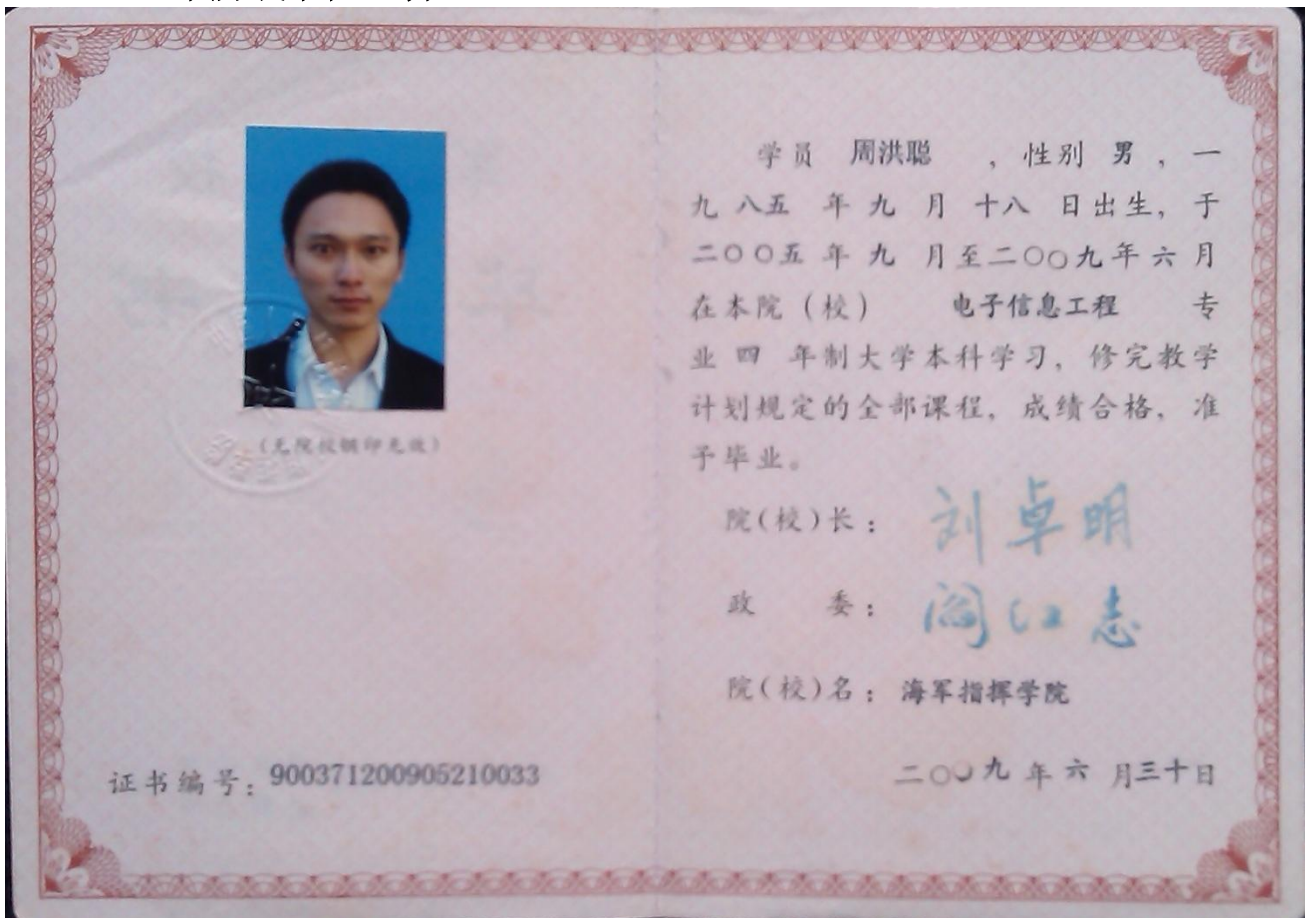 （无院校钢印无效）
证书编号：900371200905210033
学员 周洪聪 ，性别 男 ，一
九 八五 年 九 月 十八 日出生，于
二〇〇五 年 九 月至二〇〇九年 六 月
在本院（校） 电子信息工程 专
业 四 年制大学本科学习，修完教学
计划规定的全部课程，成绩合格，准
予毕业。
院（校）长： 刘卓明
政 委： 阎红志
院（校）名：海军指挥学院
二〇〇九 年 六 月三十日